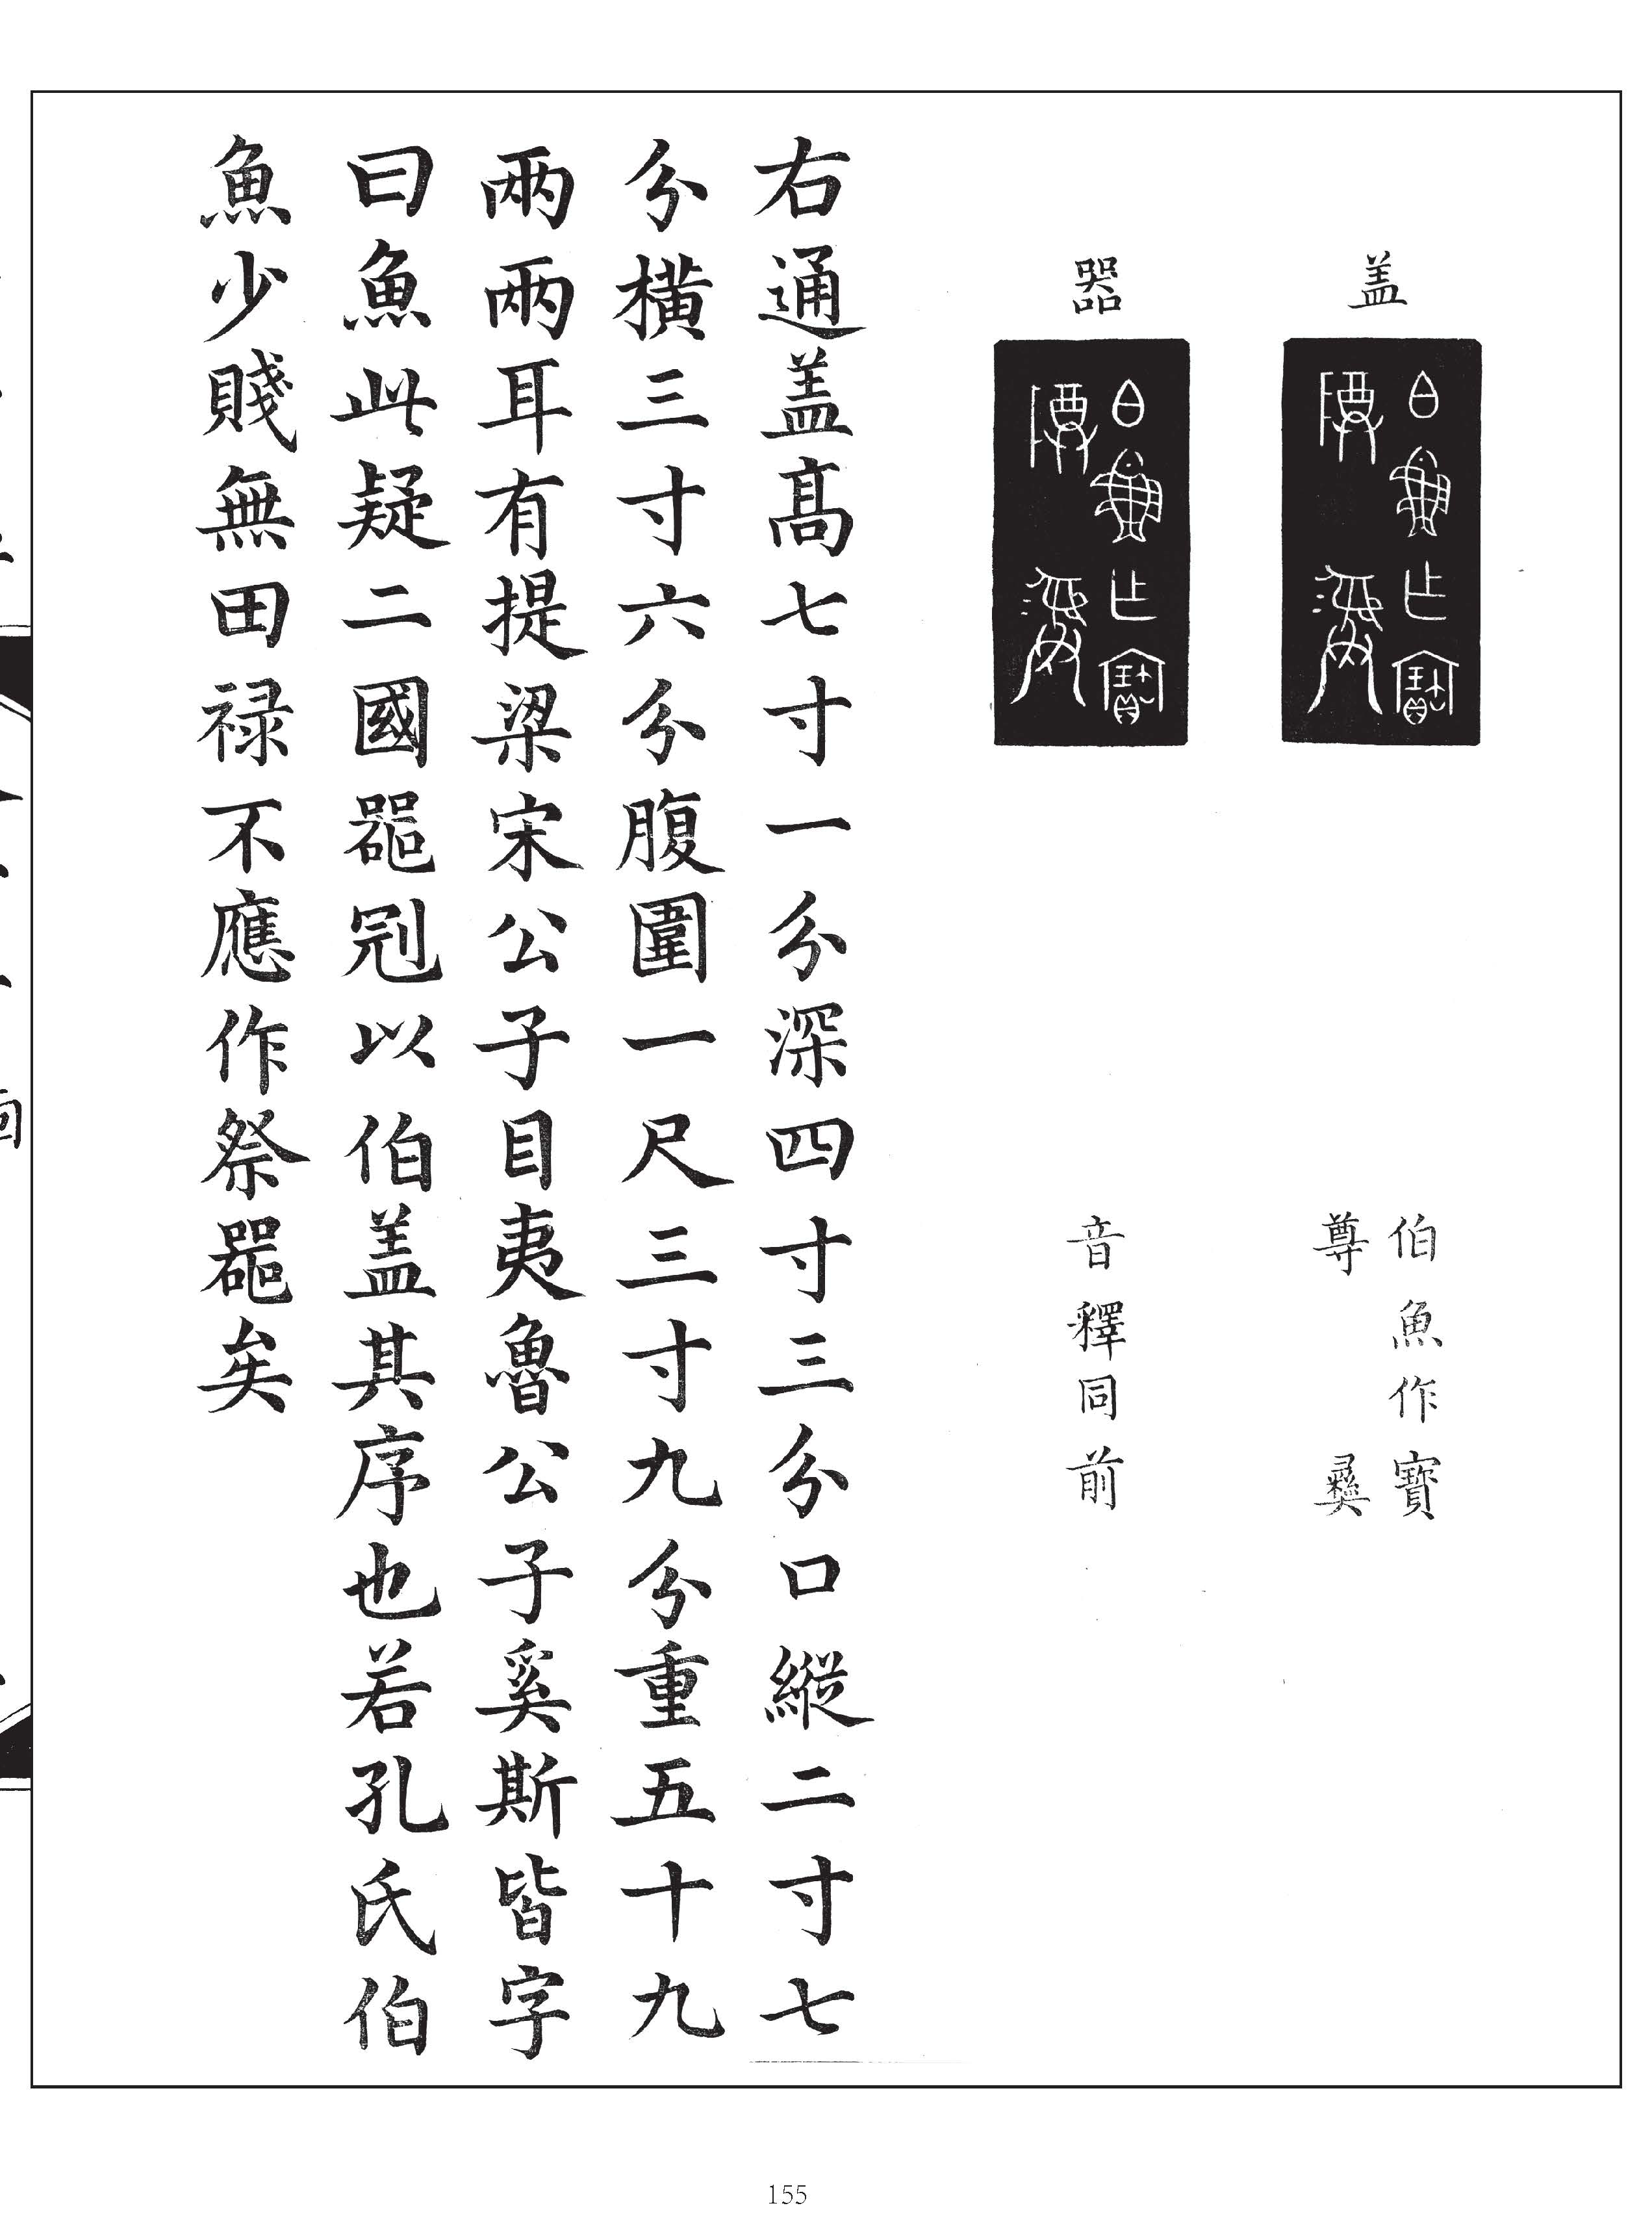 蓋
伯魚作寶
尊彝
器
音釋同前
右通蓋高七寸一分深四寸三分口縱二寸七
分橫三寸六分腹圍一尺三寸九分重五十九
兩兩耳有提梁宋公子目夷魯公子奚斯皆字
曰魚此疑二國器冠以伯蓋其序也若孔氏伯
魚少賤無田祿不應作祭器矣
155